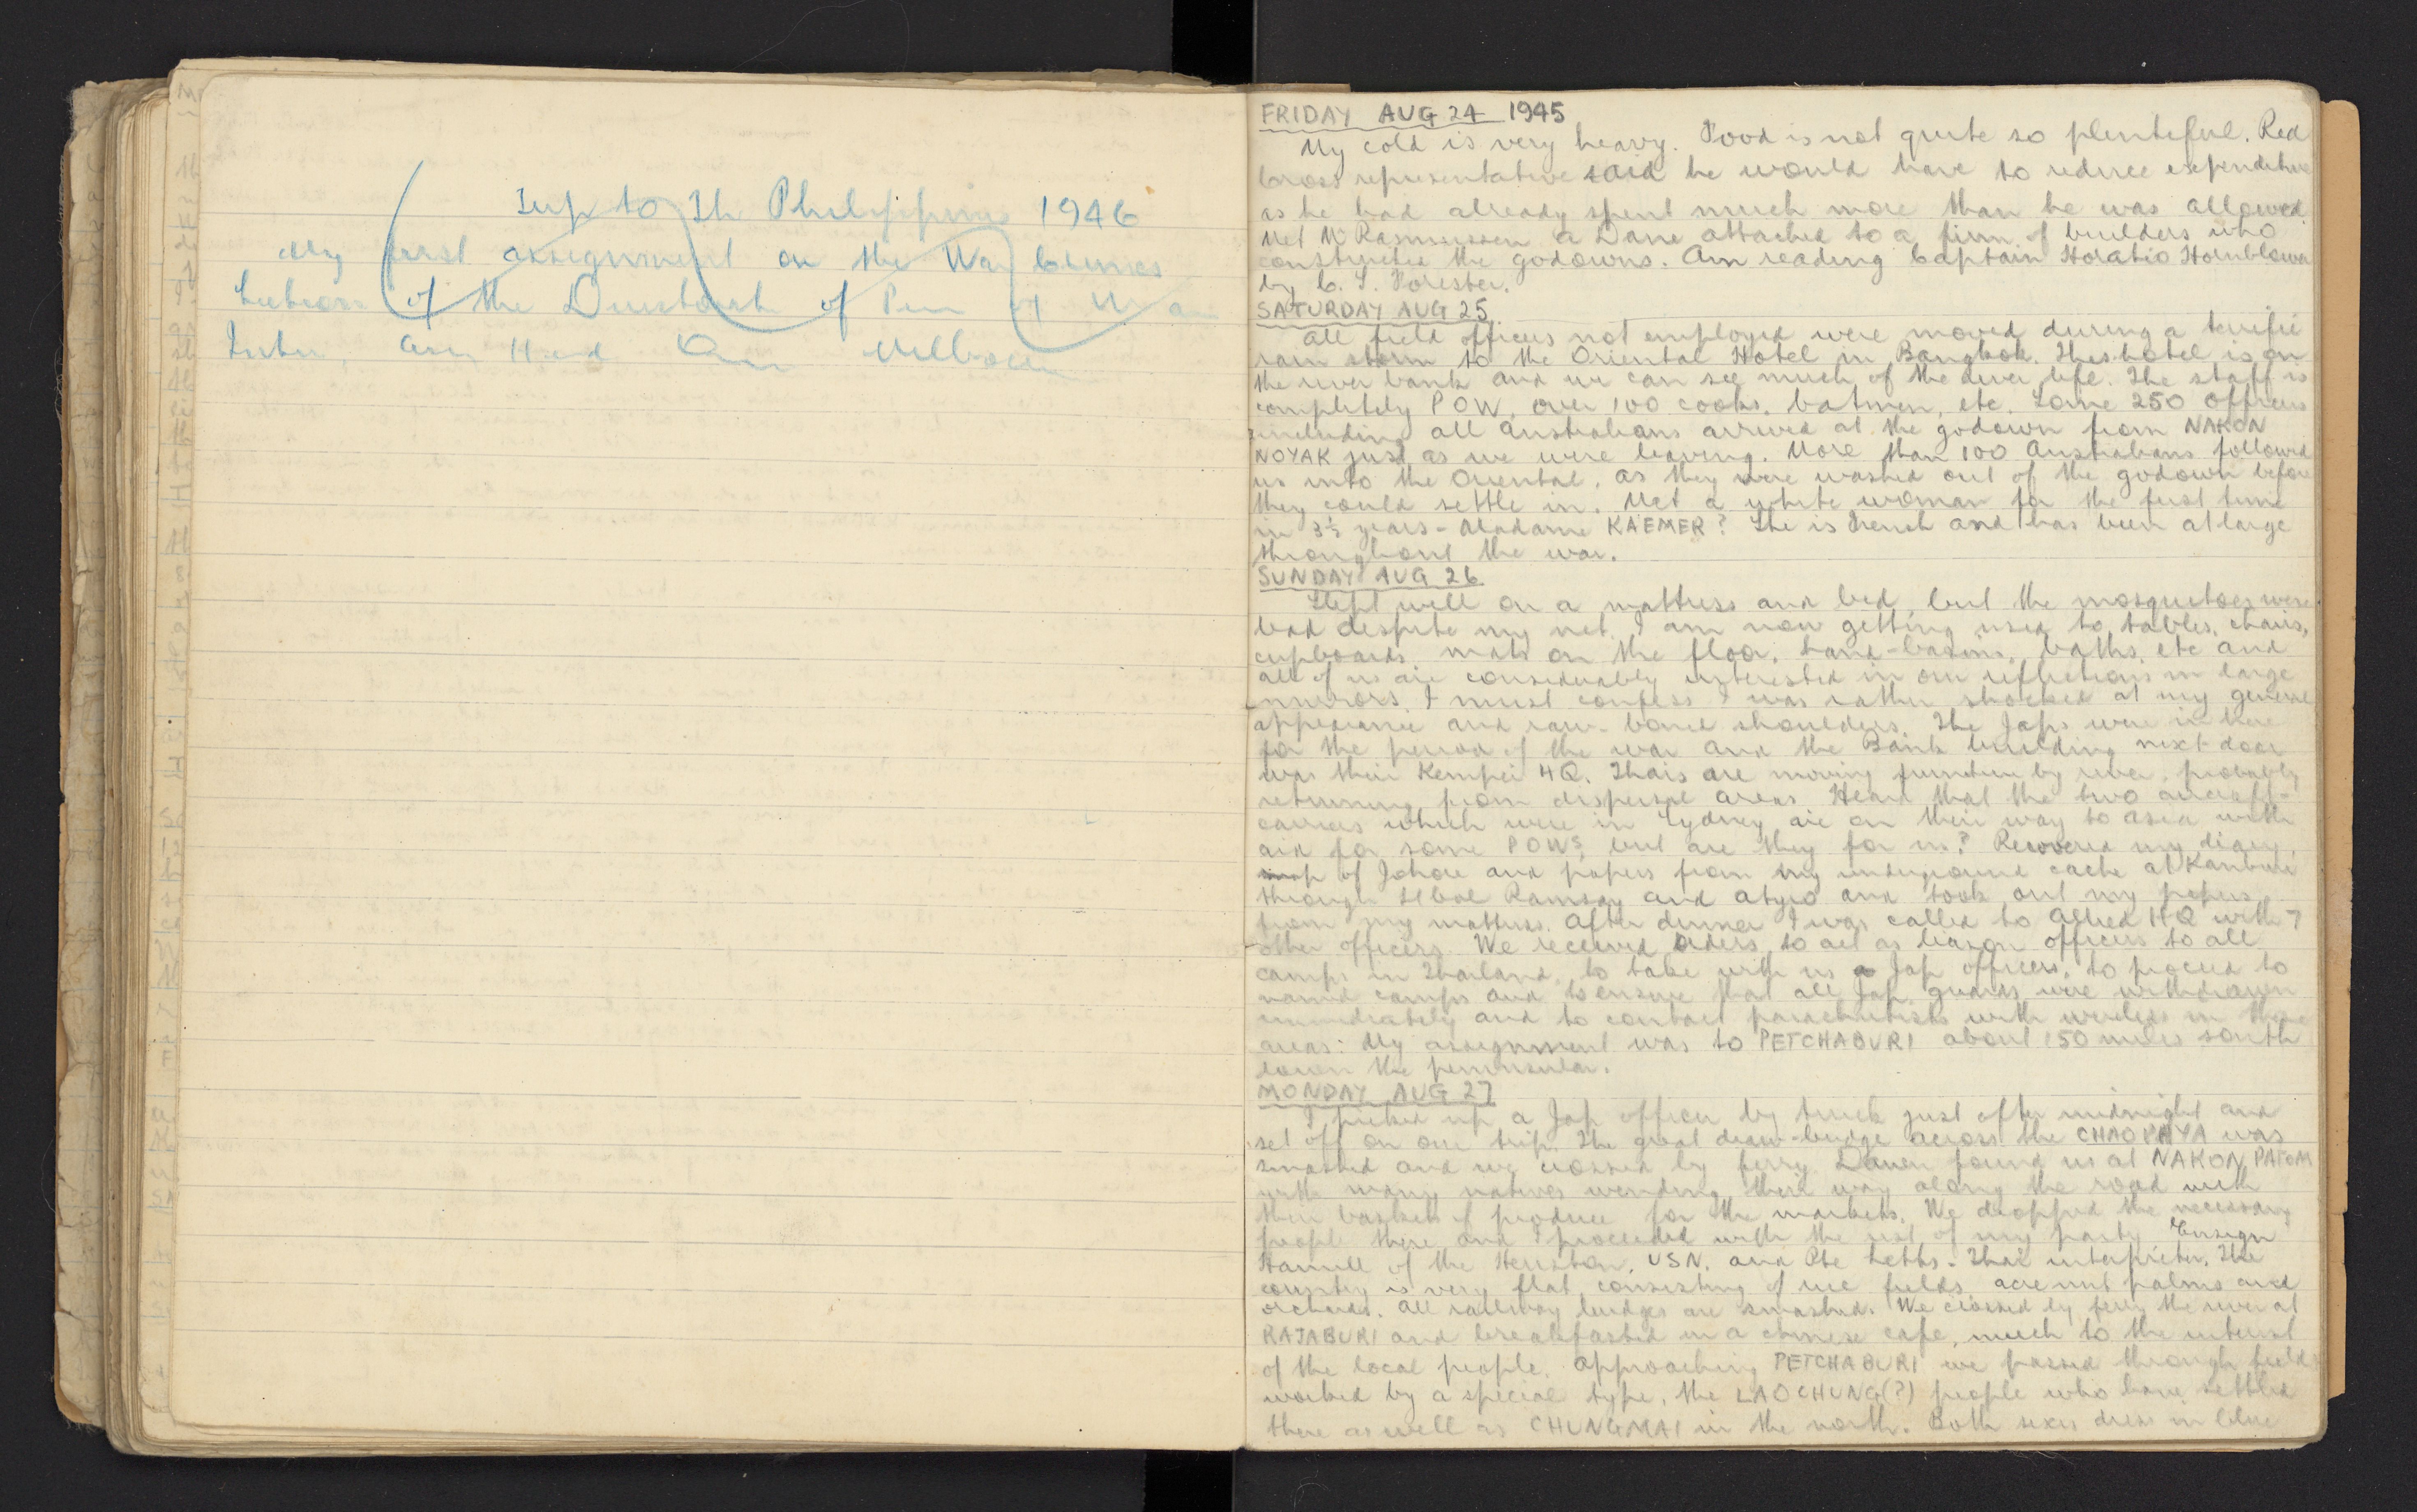 Trip to Th Philippines 1946
My first assignment on the War Crimes
Section of the Directorate of Pris of War
Inter, Army Head Melbourne
FRIDAY AUG 24 1945
My cold is very heavy. Food is not quite so plentiful. Red
Cross representative said he would have to reduce expenditure
as he had already spent much more than he was allowed.
Met Mr Rasmussen a Dane attached to a firm of builders who
constructed the godowns. Am reading Captain Horatio Hornblower
by C. S. Forester.
SATURDAY AUG 25
All field officers not employed were moved during a terrific
rain storm to the Oriental Hotel in Bangkok. This hotel is on
the river bank and we can see much of the river life. The staff is
completely POW, over 100 cooks, batmen, etc. Some 250 officers
including all Australians arrived at the godown from NAKON
NOYAK just as we were leaving. More than 100 Australians followed
us into the Oriental, as they were washed out of the godown before
they could settle in. Met a white woman for the first time
in 3½ years - Madame KAEMER? She is French and has been at large
throughout the war.
SUNDAY AUG 26
Slept well on a mattress and bed, but the mosquitoes were
bad despite my net. I am now getting used to tables, chairs,
cupboards, mats on the floor, hand-basins, baths, etc and
all of us are considerably interested in our reflections in large
mirrors. I must confess I was rather shocked at my general
appearance and raw-boned shoulders. The Japs were in here
for the period of the war and the Bank building next door
was their Kempei HQ. Thais are moving furniture by river, probably
returning from dispersal areas. Hear that the two aircraft-
carriers which were in Sydney are on their way to Asia with
aid for some POWs, but are they for us? Recovered my diary,
map of Johore and papers from my underground cache at Kanburi
through Ltcol Ramsay and and took out my papers
from my mattress. After dinner I was called to Allied HQ with 7
other officers. We received orders to act as liaison officers to all
camps in Thailand, to take with us Jap officers, to proceed to
named camps and to ensure that all Jap guards were withdrawn
immediately and to contact parachutists with wireless in these
areas: My assignment was to PETCHABURI about 150 miles south
down the peninsular.
MONDAY AUG 27
I picked up a Jap officer by truck just after midnight and
set off on our trip. The great draw-bridge across the CHAOPHYA was
smashed and we crossed by ferry. Dawn found us at NAKON PATOM
with many natives wending their way along the road with
their baskets of produce for the markets. We dropped the necessary
people there and I proceeded with the rest of my party Ensign
Hamill of the Houston, USN, and Pte Letts - Thai interpreter. The
country is very flat consisting of rice fields, acre nut palms and
orchards. All railway bridges are smashed. We crossed by ferry the river at
RAJABURI and breakfasted in a chinese cafe, much to the interest
of the local people. Approaching PETCHABURI we passed through fields
worked by a special type, the LAOCHUNG(?) people who have settled
there as well as CHUNGMAI in the north. Both sexes dress in blue